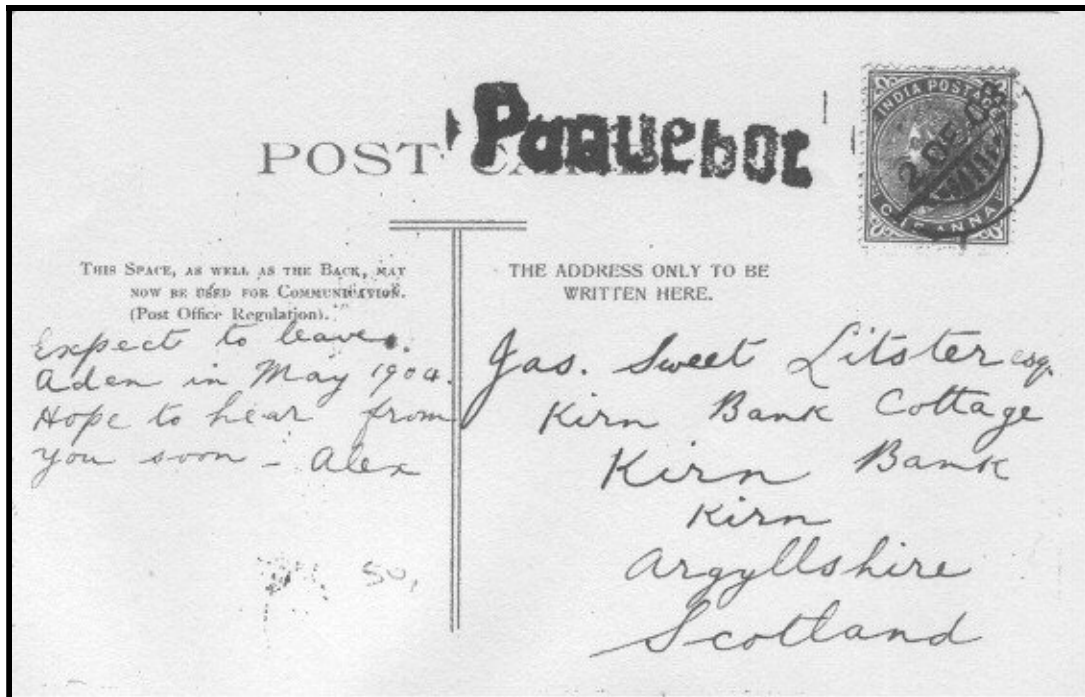 POST CARD
Paquebot
INDIA POSTAGE
2 DE 03
ONE ANNA
THIS SPACE, AS WELL AS THE BACK, MAY
NOW BE USED FOR COMMUNICATION.
(Post Office Regulation).
Expect to leave
Aden in May 1904.
Hope to hear from
you soon - Alex
50,
THE ADDRESS ONLY TO BE
WRITTEN HERE.
Jas. Sweet Litster esq.
Kirn Bank Cottage
Kirn Bank
Kirn
Argyllshire
Scotland